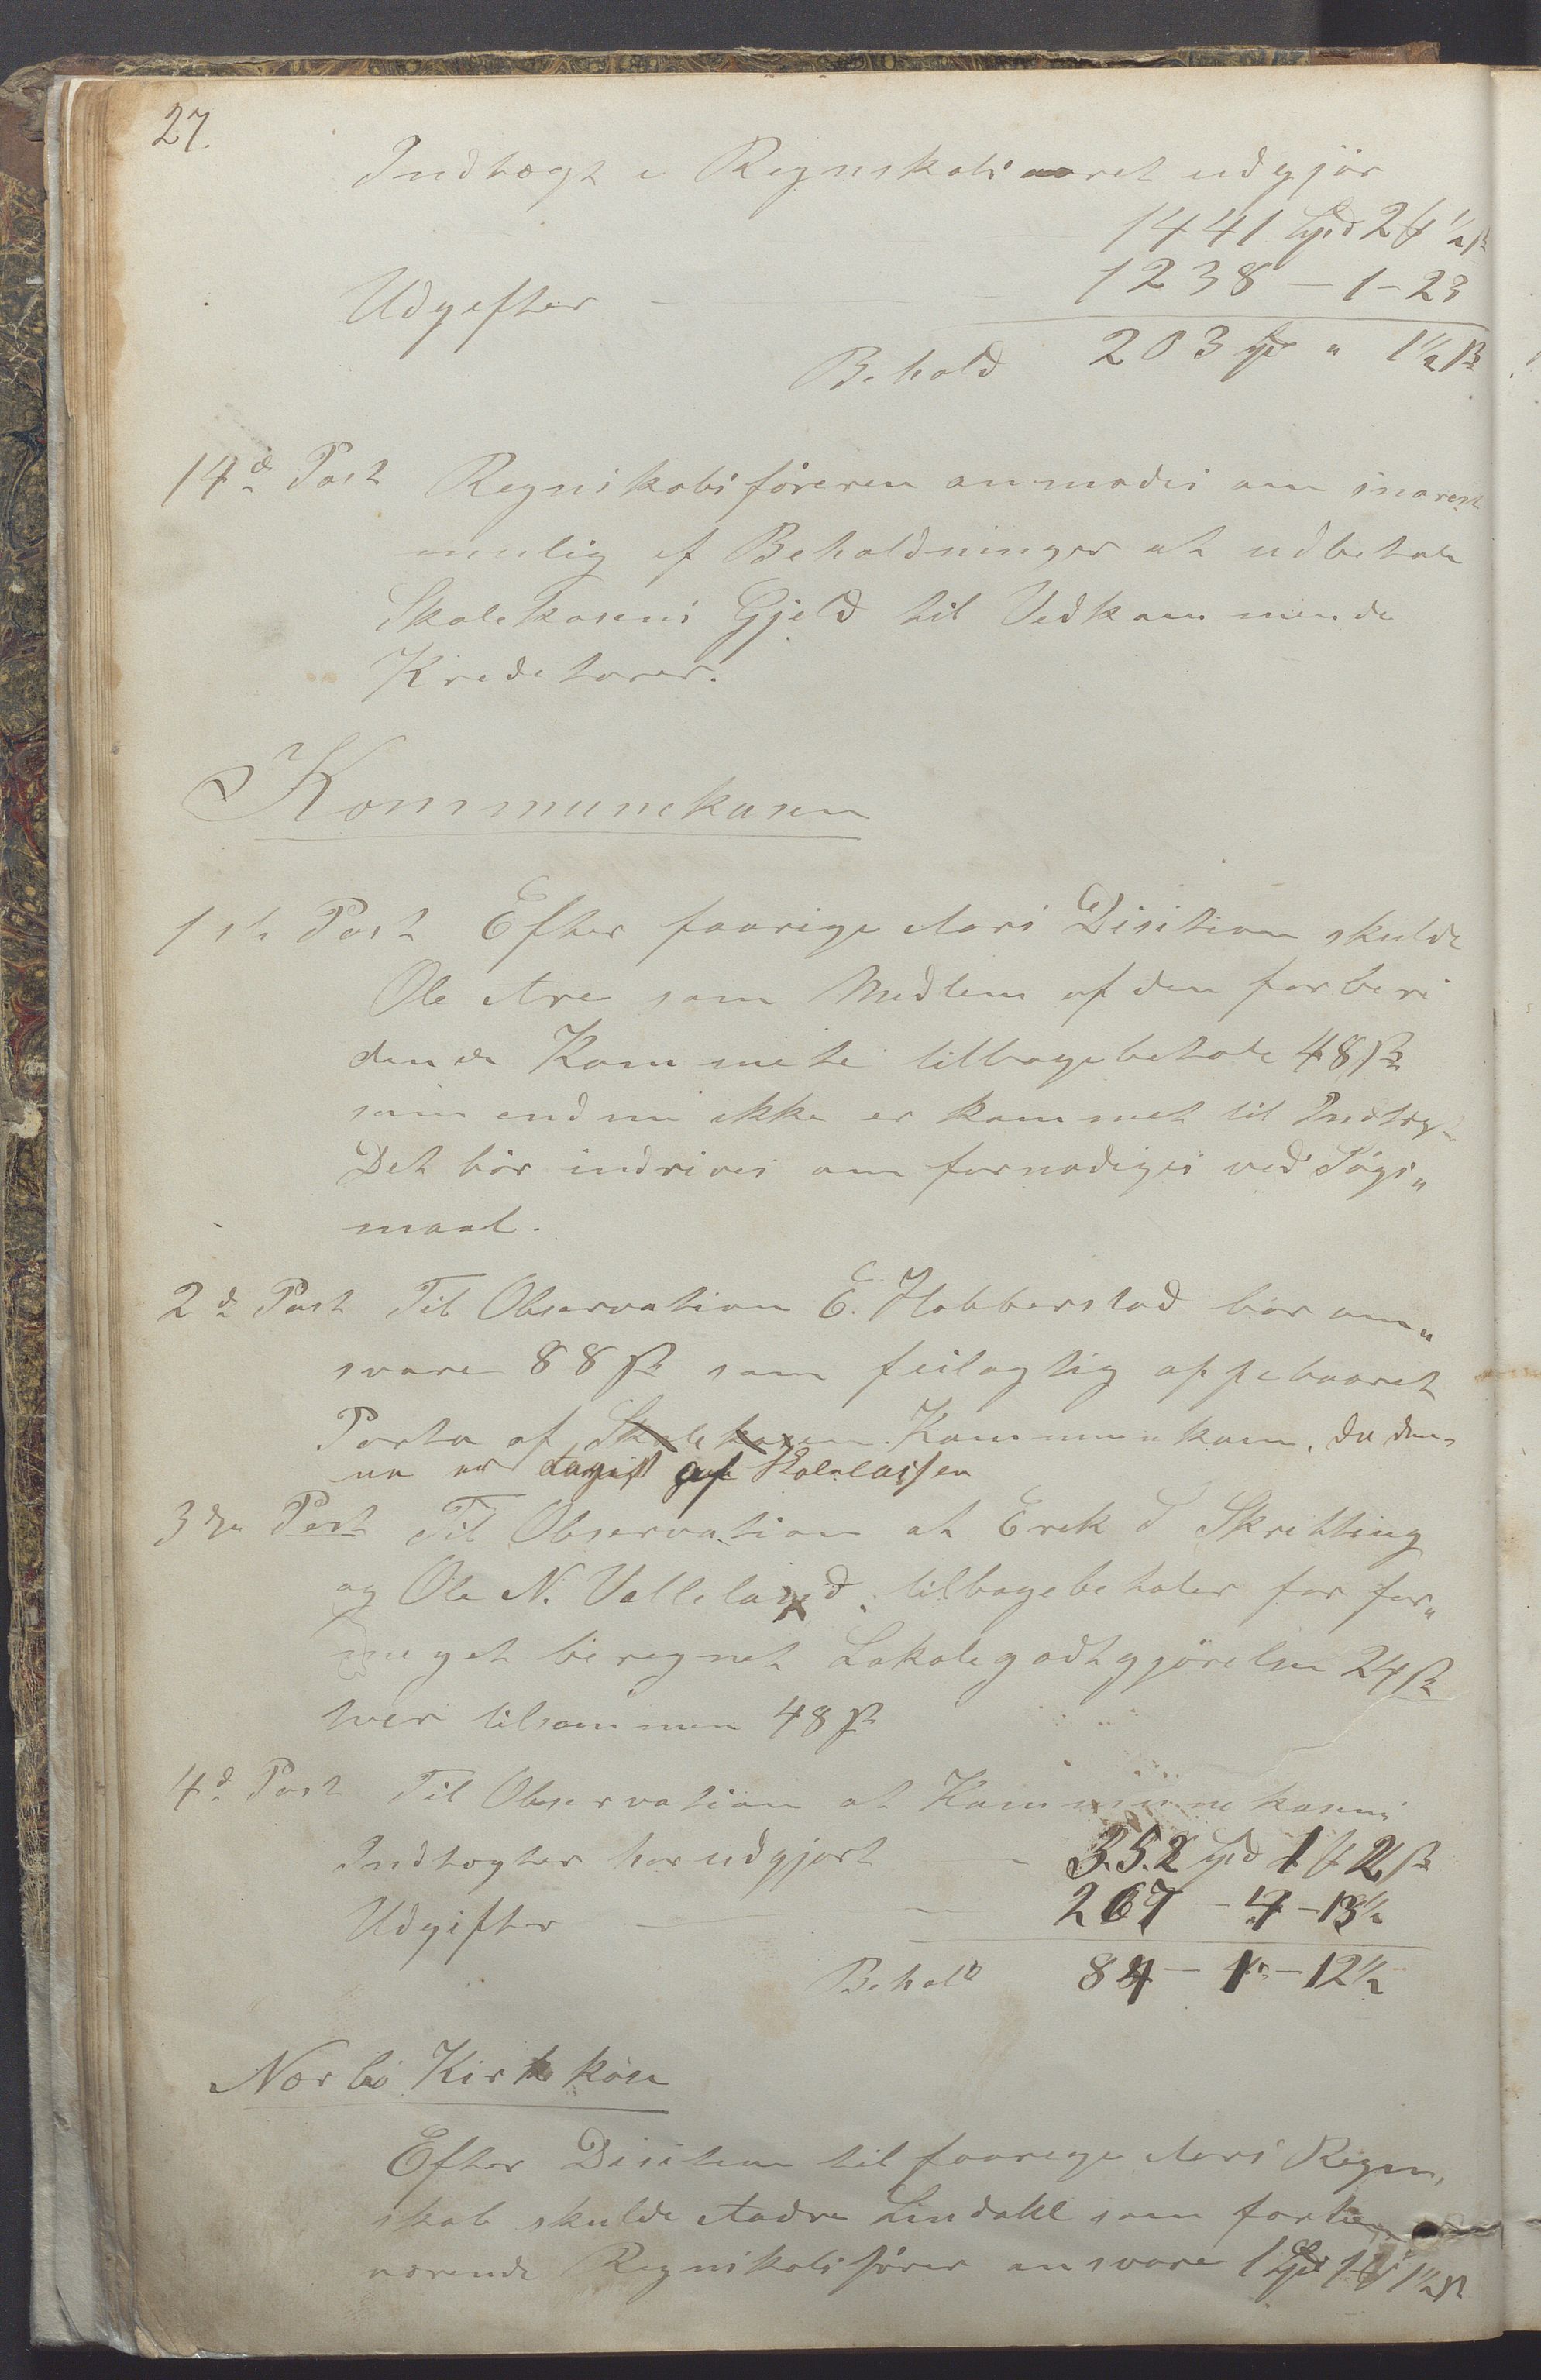 27.
Indtægt i Regnskabsaaret udgjör
1441 Spd 2 ₰ ½ ß
Udgifter — 1238 – 1 – 23
Behold 203 Spd " 1½ ß
14de Post Regnskabsföreren anmodes om snarest
mulig af Beholdninger at udbetale
Skolekasens Gjeld til Vedkommende
Kreditorer.
Kommunekasen
1ste Post Efter forrige Aars Disition skulde
Ole Are som Medlem af den forbere
dende Kommite tilbagebetale 48 ß
som endnu ikke er kommet til Indtægt
Det bör indrives om fornödiges ved Sögs„
maal.
2de Post Til Observation E. Hobberstad bör an„
svare 88 ß som feilagtig oppebaaret
Porto af Skolekasen Kommunekasen, da den„
ne er Skolekassen
3die Post Til Observation at Erek T Skretting
og Ole N. Valleland tilbagebetaler for for„
meget beregnet Lokalegodtgjörelse 24 ß
hver tilsammen 48 ß
4de Post Til Observation at Kommunekasens
Indtægter har udgjort — 352 Spd 1 ₰ 2 ß
Udgifter — 267 – 4 – 13½
Behold 84 – 1 – 12½
Nærbö Kirkekase
Efter Disition til forrige Aars Regn„
skab skulde Aadne Lindahl som forhen
værende Regnskabsförer ansvare 1 Spd 1 ₰ 1½ ß